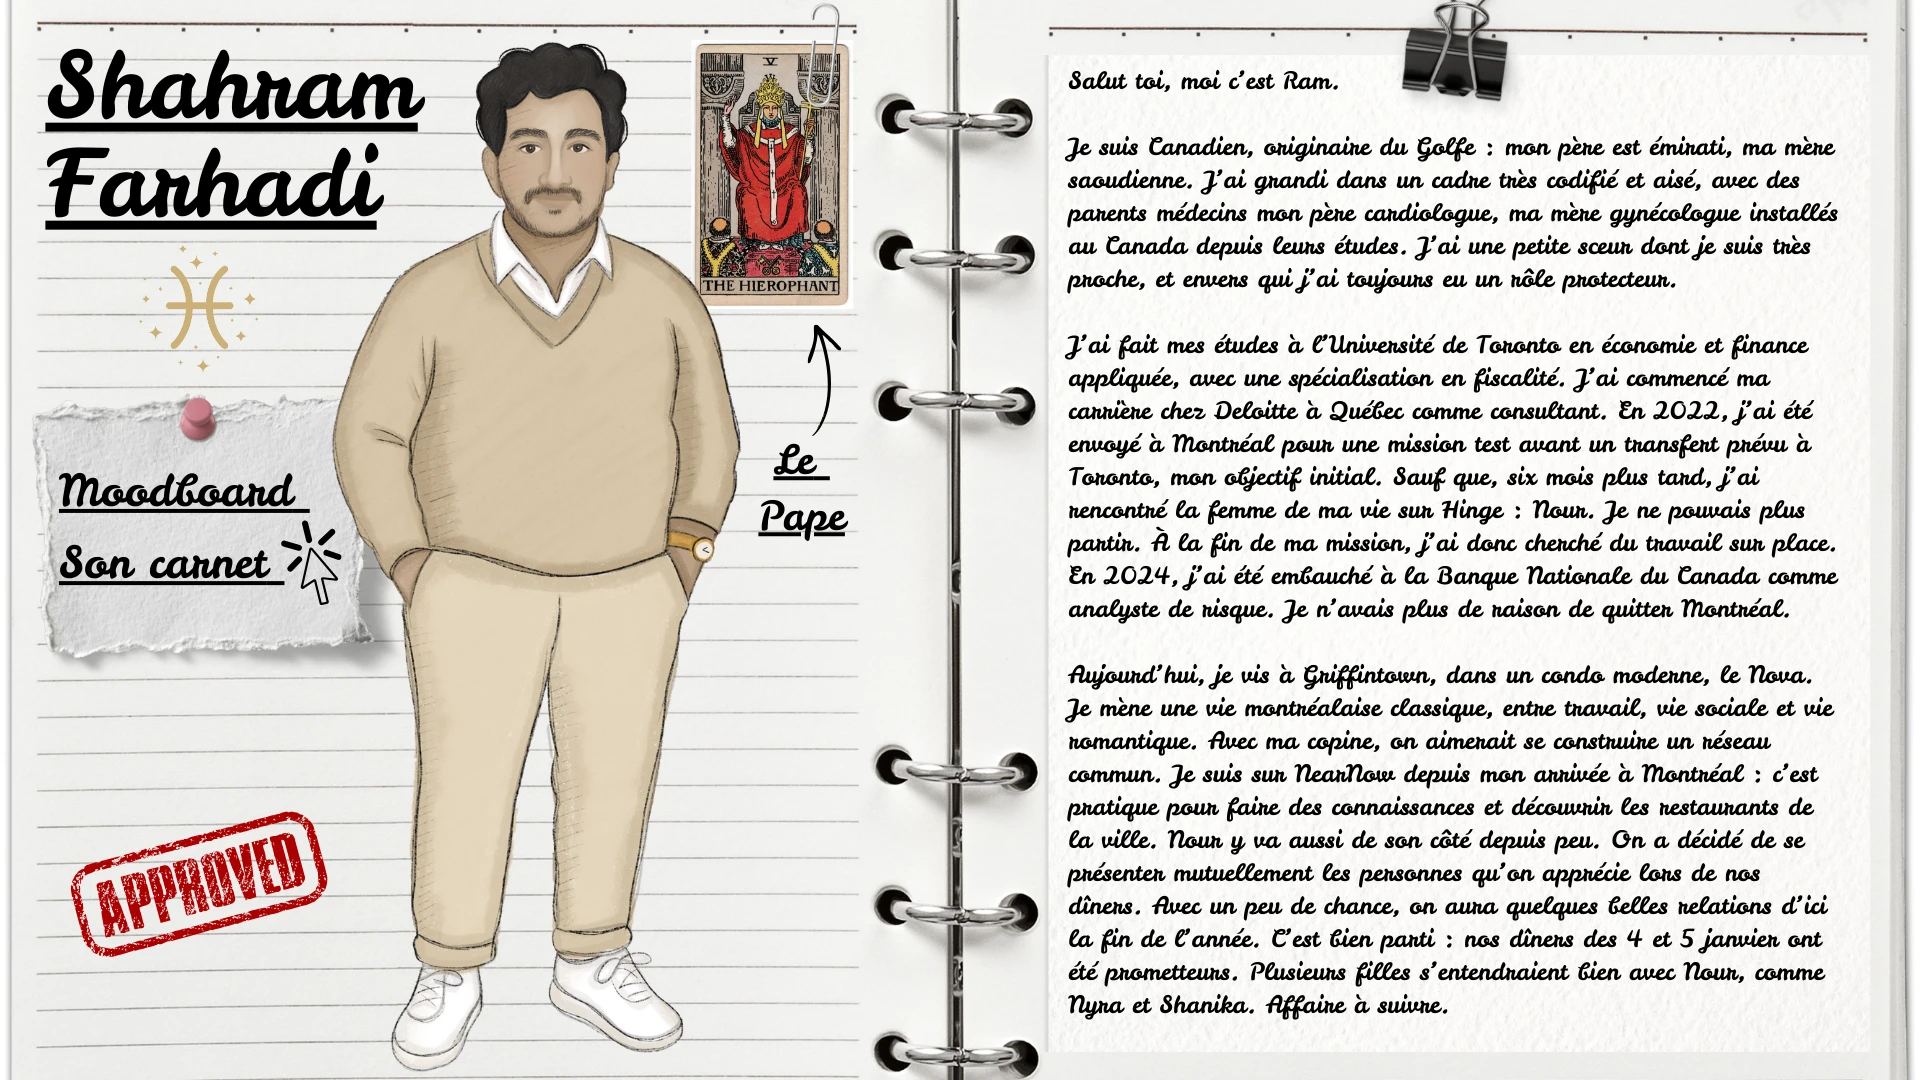 Shahram
Farhadi
V
THE HIEROPHANT
Le
Pape
Moodboard
Son carnet
APPROVED
Salut toi, moi c'est Ram.
Je suis Canadien, originaire du Golfe : mon père est émirati, ma mère
saoudienne. J'ai grandi dans un cadre très codifié et aisé, avec des
parents médecins mon père cardiologue, ma mère gynécologue installés
au Canada depuis leurs études. J'ai une petite sœur dont je suis très
proche, et envers qui j'ai toujours eu un rôle protecteur.
J'ai fait mes études à l'Université de Toronto en économie et finance
appliquée, avec une spécialisation en fiscalité. J'ai commencé ma
carrière chez Deloitte à Québec comme consultant. En 2022, j'ai été
envoyé à Montréal pour une mission test avant un transfert prévu à
Toronto, mon objectif initial. Sauf que, six mois plus tard, j'ai
rencontré la femme de ma vie sur Hinge : Nour. Je ne pouvais plus
partir. À la fin de ma mission, j'ai donc cherché du travail sur place.
En 2024, j'ai été embauché à la Banque Nationale du Canada comme
analyste de risque. Je n'avais plus de raison de quitter Montréal.
Aujourd'hui, je vis à Griffintown, dans un condo moderne, le Nova.
Je mène une vie montréalaise classique, entre travail, vie sociale et vie
romantique. Avec ma copine, on aimerait se construire un réseau
commun. Je suis sur NearNow depuis mon arrivée à Montréal : c'est
pratique pour faire des connaissances et découvrir les restaurants de
la ville. Nour y va aussi de son côté depuis peu. On a décidé de se
présenter mutuellement les personnes qu'on apprécie lors de nos
dîners. Avec un peu de chance, on aura quelques belles relations d'ici
la fin de l'année. C'est bien parti : nos dîners des 4 et 5 janvier ont
été prometteurs. Plusieurs filles s'entendraient bien avec Nour, comme
Nyra et Shanika. Affaire à suivre.